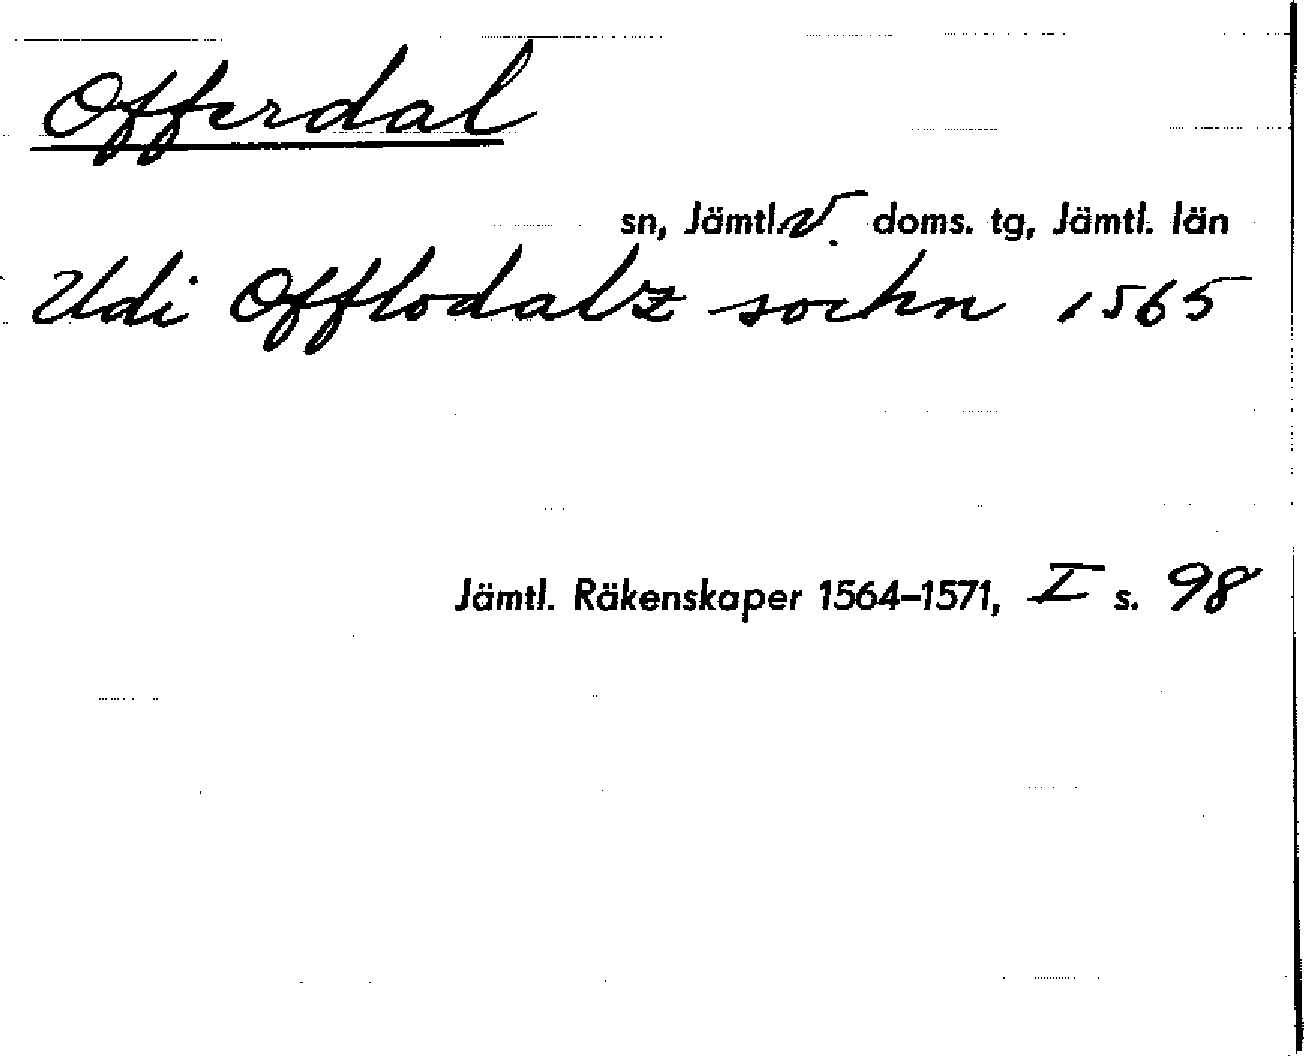 Offerdal
sn, Jämtl. V. doms. tg, Jämtl. län
Udi Offlodalz sockn 1565
Jämtl. Räkenskaper 1564–1571, I s. 98